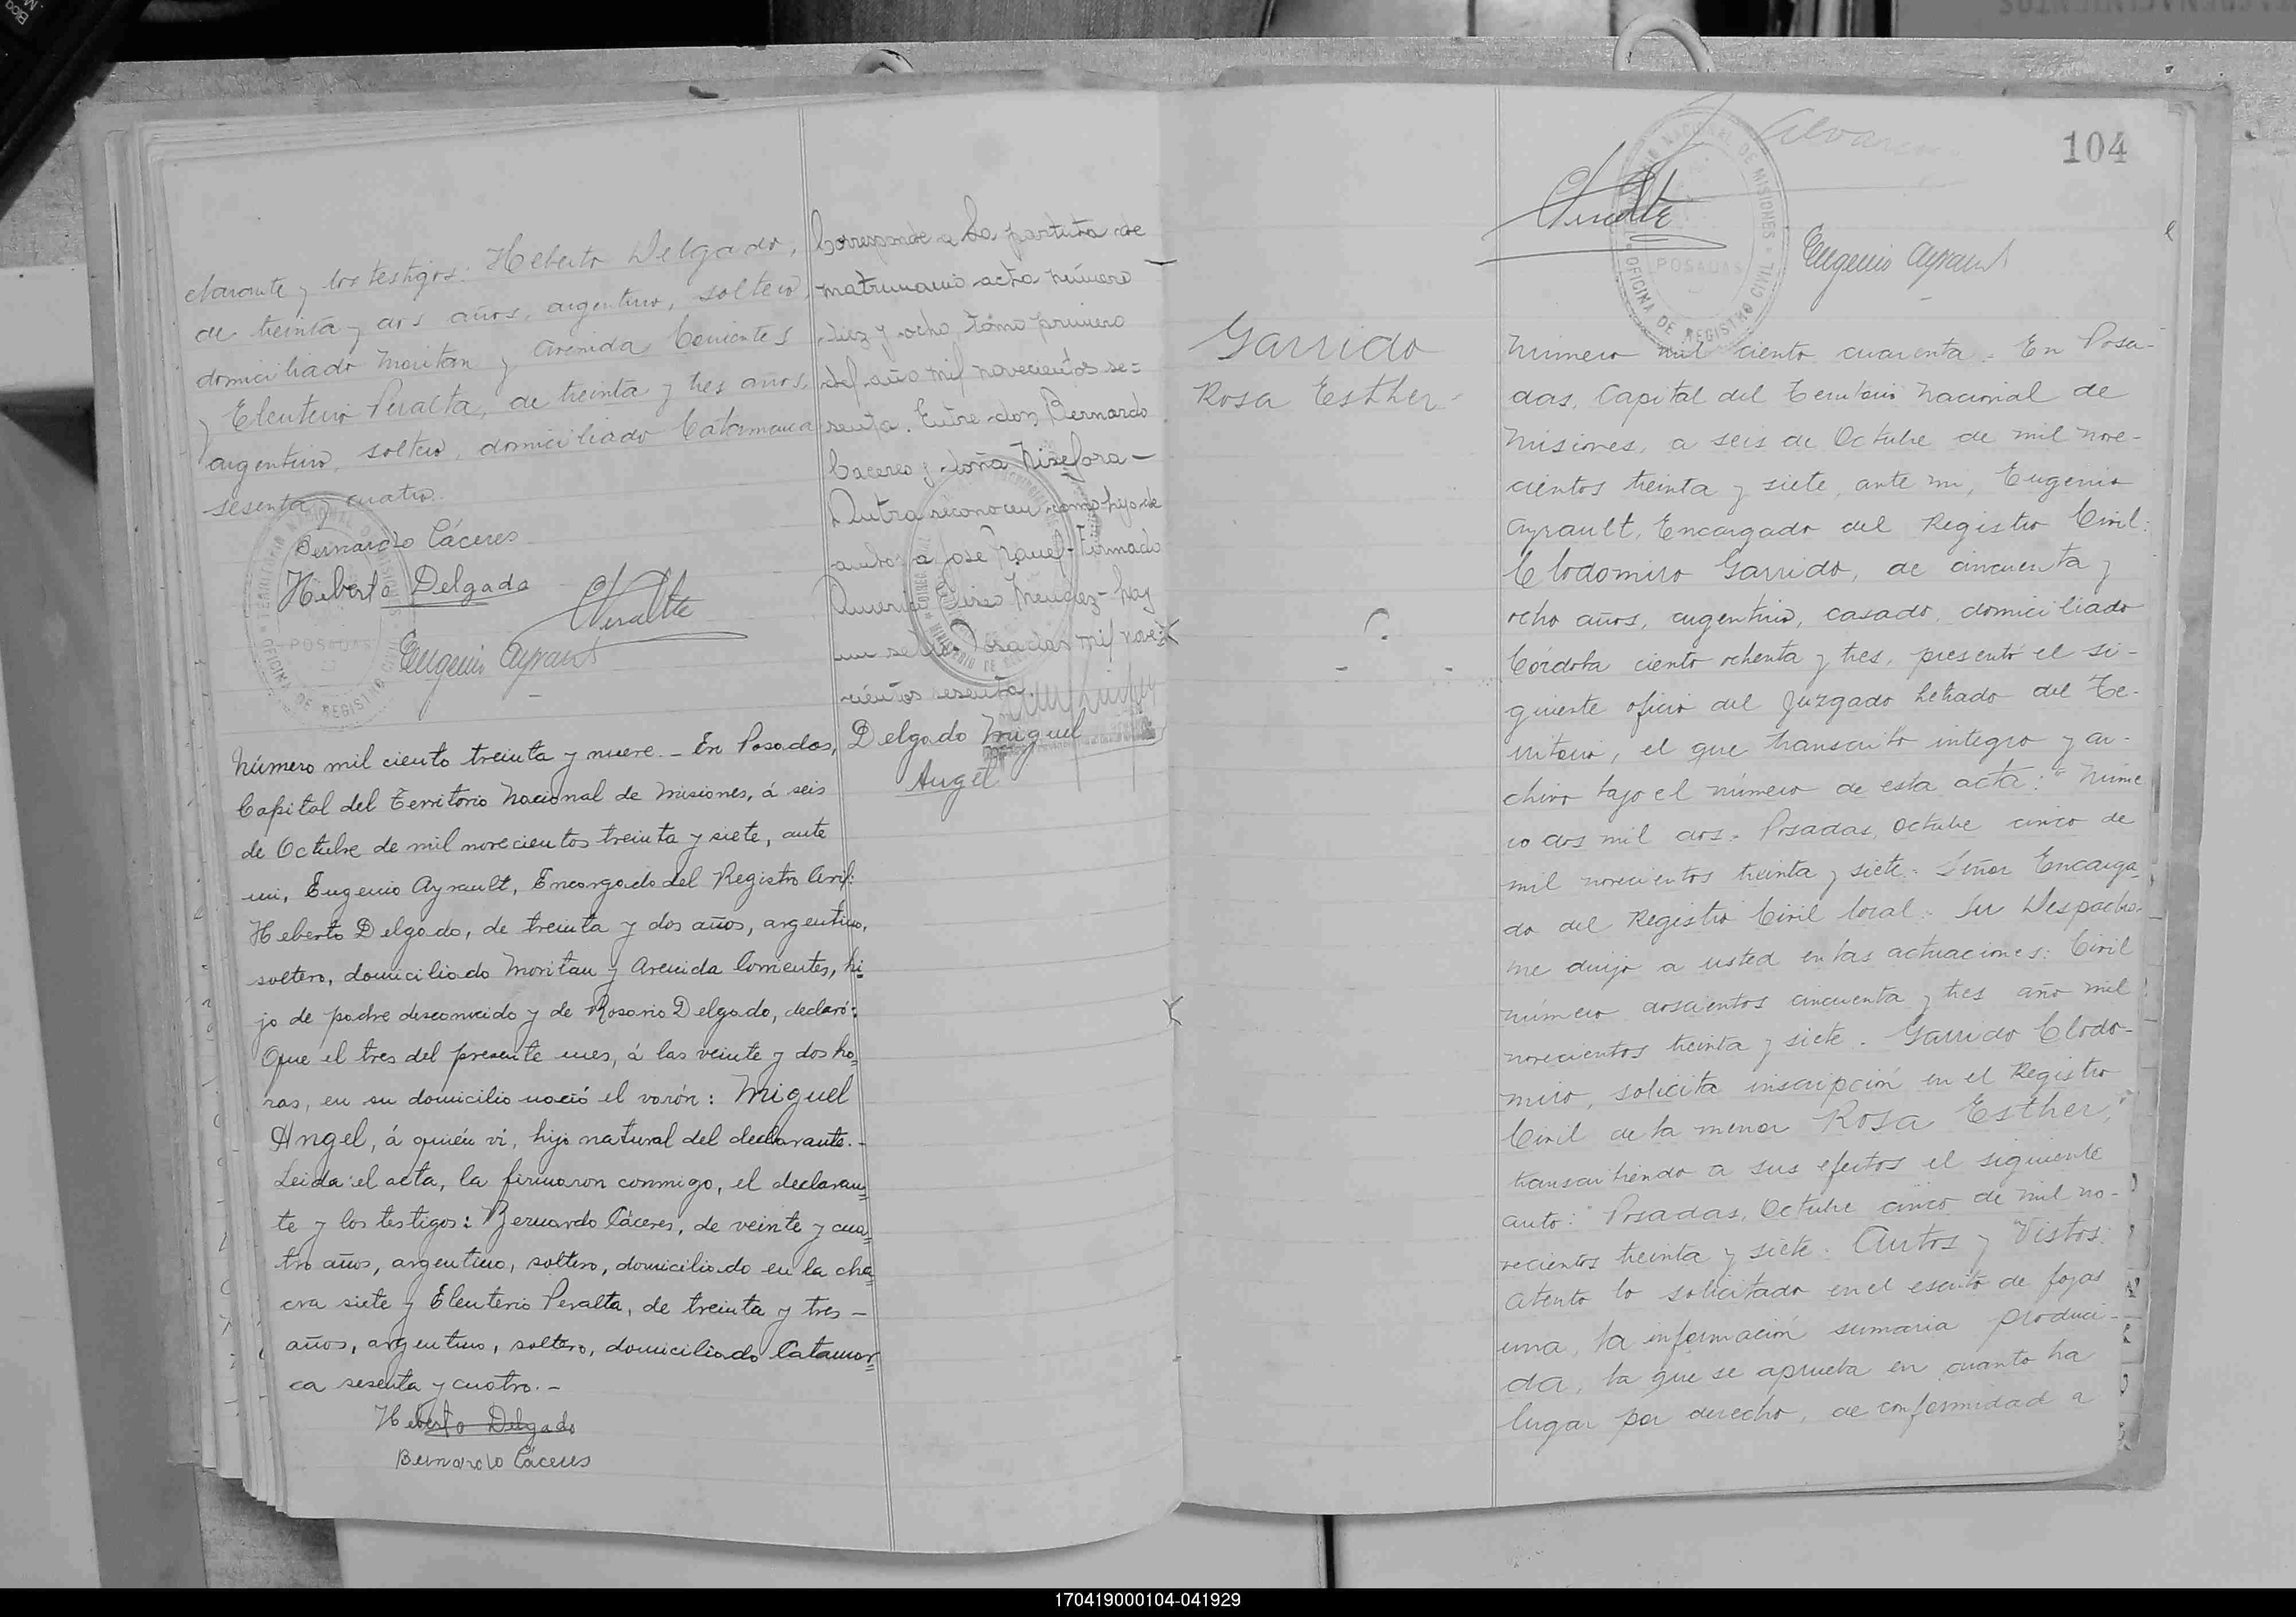 clarante y los testigos: Heberto Delgado,
de treinta y dos años, argentino, soltero,
domiciliado Moritan y Avenida Corrientes
y Eleuterio Peralta, de treinta y tres años,
argentino, soltero, domiciliado Catamarca
sesenta y cuatro.
Bernardo Cáceres
Heberto Delgado
EPeralta
Eugenio Ayrault
TERRITORIO NACIONAL DE MISIONES
POSADAS
OFICINA DE REGISTRO CIVIL
Corresponde a la partida de
matrimonio acta número
diez y ocho tomo primero
del año mil novecientos se=
senta. Entre don Bernardo
Caceres y doña Nisefora
Dutra reconocen como hijo de
ambos a José Manuel - Firmado
Americo Méndez - hay
un sello Posadas mil nove=
cientos sesenta.
Número mil ciento treinta y nueve. - En Posadas,
Capital del Territorio Nacional de Misiones, á seis
de Octubre de mil novecientos treinta y siete, ante
mi, Eugenio Ayrault, Encargado del Registro Civil:
Heberto Delgado, de treinta y dos años, argentino,
soltero, domiciliado Moritan y Avenida Corrientes, hi=
jo de padre desconocido y de Rosario Delgado, declaró:
Que el tres del presente mes, á las veinte y dos ho=
ras, en su domicilio nació el varón: Miguel
Angel, á quién vi, hijo natural del declarante. -
Leida el acta, la firmaron conmigo, el declaran=
te y los testigos: Bernardo Cáceres, de veinte y cua=
tro años, argentino, soltero, domiciliado en la cha=
cra siete y Eleuterio Peralta, de treinta y tres -
años, argentino, soltero, domiciliado Catamar=
ca sesenta y cuatro. -
Heberto Delgado
Bernardo Cáceres
Delgado Miguel
Angel
104
TERRITORIO NACIONAL DE MISIONES
POSADAS
OFICINA DE REGISTRO CIVIL
EPeralta
Eugenio Ayrault
Garrido
Rosa Esther -
Número mil ciento cuarenta. - En Posa-
das, Capital del Territorio Nacional de
Misiones, a seis de Octubre de mil nove-
cientos treinta y siete, ante mi, Eugenio
Ayrault, Encargado del Registro Civil:
Clodomiro Garrido, de cincuenta y
ocho años, argentino, casado, domiciliado
Córdoba ciento ochenta y tres, presentó el si-
guiente oficio del Juzgado Letrado del Te-
rritorio, el que transcrito integro y ar-
chivo bajo el número de esta acta: "Núme
ro dos mil dos. - Posadas, Octubre cinco de
mil novecientos treinta y siete. - Señor Encarga
do del Registro Civil local. - Su Despacho.
me dirijo a usted en las actuaciones: Civil
número doscientos cincuenta y tres año mil
novecientos treinta y siete. - Garrido Clodo-
miro, solicita inscripción en el Registro
Civil de la menor Rosa Esther,"
transcribiendo a sus efectos el siguiente
auto: "Posadas, Octubre cinco de mil no-
vecientos treinta y siete. - Autos y Vistos:
Atento lo solicitado en el escrito de fojas
una, la información sumaria produci-
da, la que se aprueba en cuanto ha
lugar por derecho, de conformidad a
170419000104-041929